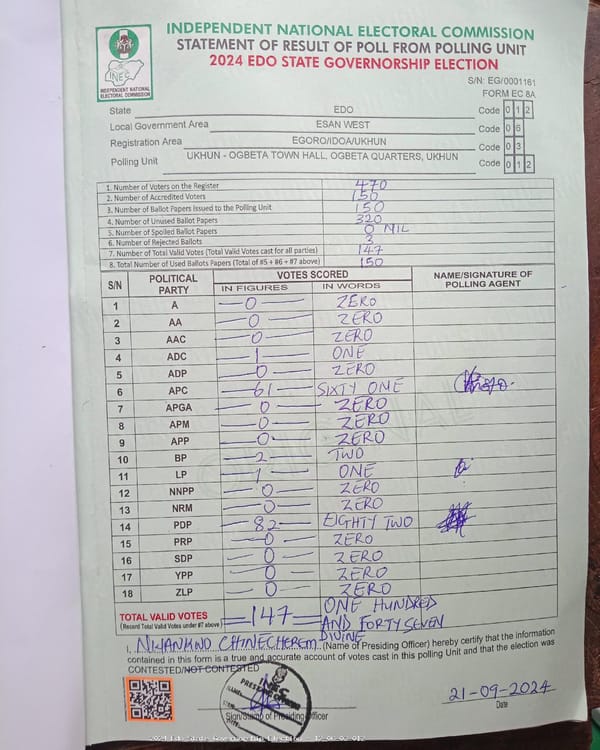 INDEPENDENT NATIONAL ELECTORAL COMMISSION
STATEMENT OF RESULT OF POLL FROM POLLING UNIT
2024 EDO STATE GOVERNORSHIP ELECTION
INEC
INDEPENDENT NATIONAL
ELECTORAL COMMISSION
S/N: EG/0001161
FORM EC 8A
State EDO Code 0 1 2
Local Government Area ESAN WEST Code 0 6
Registration Area EGORO/IDOA/UKHUN Code 0 3
Polling Unit UKHUN - OGBETA TOWN HALL, OGBETA QUARTERS, UKHUN Code 0 1 2
1. Number of Voters on the Register 470
2. Number of Accredited Voters 150
3. Number of Ballot Papers Issued to the Polling Unit 150
4. Number of Unused Ballot Papers 320
5. Number of Spoiled Ballot Papers 0 NIL
6. Number of Rejected Ballots 3
7. Number of Total Valid Votes (Total Valid Votes cast for all parties) 147
8. Total Number of Used Ballots Papers (Total of #5 + #6 + #7 above) 150
S/N POLITICAL PARTY VOTES SCORED NAME/SIGNATURE OF POLLING AGENT
IN FIGURES IN WORDS
1 A 0 ZERO
2 AA 0 ZERO
3 AAC 0 ZERO
4 ADC 1 ONE
5 ADP 0 ZERO
6 APC 61 SIXTY ONE
7 APGA 0 ZERO
8 APM 0 ZERO
9 APP 0 ZERO
10 BP 2 TWO
11 LP 1 ONE
12 NNPP 0 ZERO
13 NRM 0 ZERO
14 PDP 82 EIGHTY TWO
15 PRP 0 ZERO
16 SDP 0 ZERO
17 YPP 0 ZERO
18 ZLP 0 ZERO
TOTAL VALID VOTES =147= ONE HUNDRED
(Record Total Valid Votes under #7 above) AND FORTY SEVEN
I, CHINECHEREM DIVINE (Name of Presiding Officer) hereby certify that the information
contained in this form is a true and accurate account of votes cast in this polling Unit and that the election was
CONTESTED/NOT CONTESTED
INEC
21-09-2024
Sign/Stamp of Presiding Officer
Date